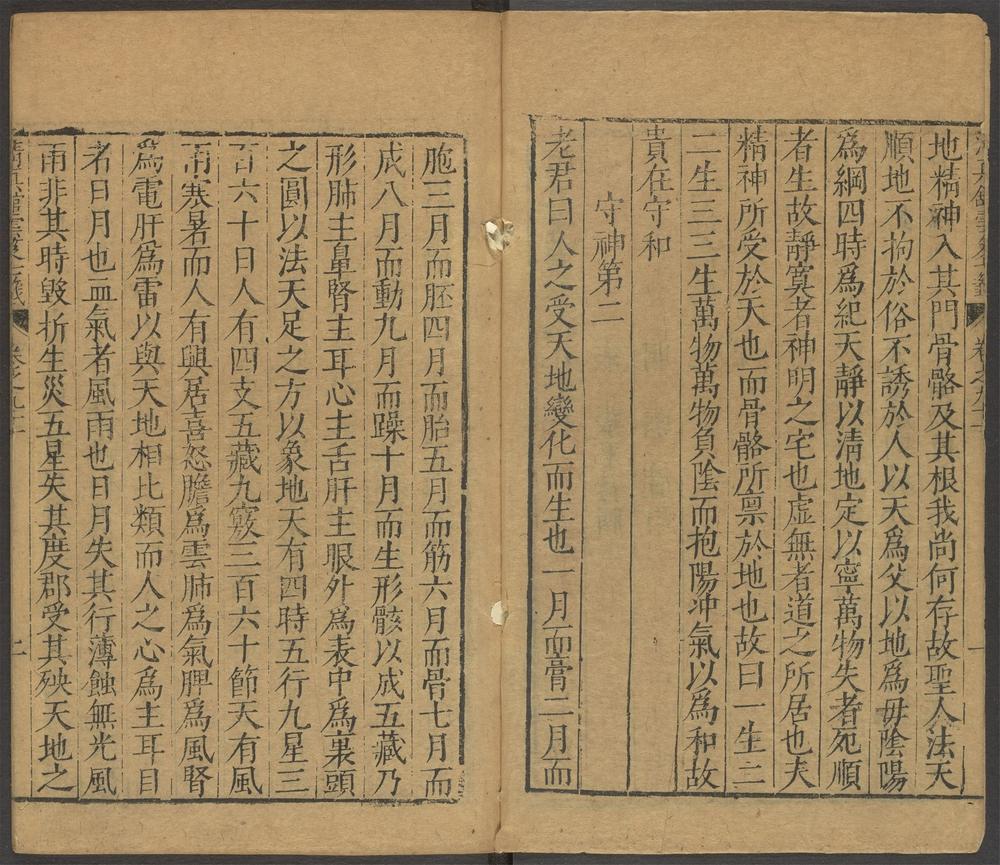 地精神入其門骨骼及其根我尚何存故聖人法天
順地不拘於俗不誘於人以天爲父以地爲毋陰陽
爲綱四時爲紀天靜以淸地定以寧萬物失者死順
者生故靜寞者神明之宅也虛無者道之所居也夫
精神所受於天也而骨骼所禀於地也故曰一生二
二生三三生萬物萬物負陰而抱陽冲氣以爲和故
貴在守和
守神第二
老君曰人之受天地變化而生也一月而膏二月而
胞三月而胚四月而胎五月而筋六月而骨七月而
成八月而動九月而躁十月而生形骸以成五藏乃
形肺主鼻腎主耳心主舌肝主眼外爲表中爲裏頭
之圓以法天足之方以象地天有四時五行九星三
百六十日人有四支五藏九竅三百六十節天有風
雨寒暑而人有與居喜怒膽爲雲肺爲氣脾爲風腎
爲電肝爲雷以與天地相比類而人之心爲主耳目
者日月也血氣者風雨也日月失其行薄蝕無光風
雨非其時毀折生災五星失其度郡受其殃天地之